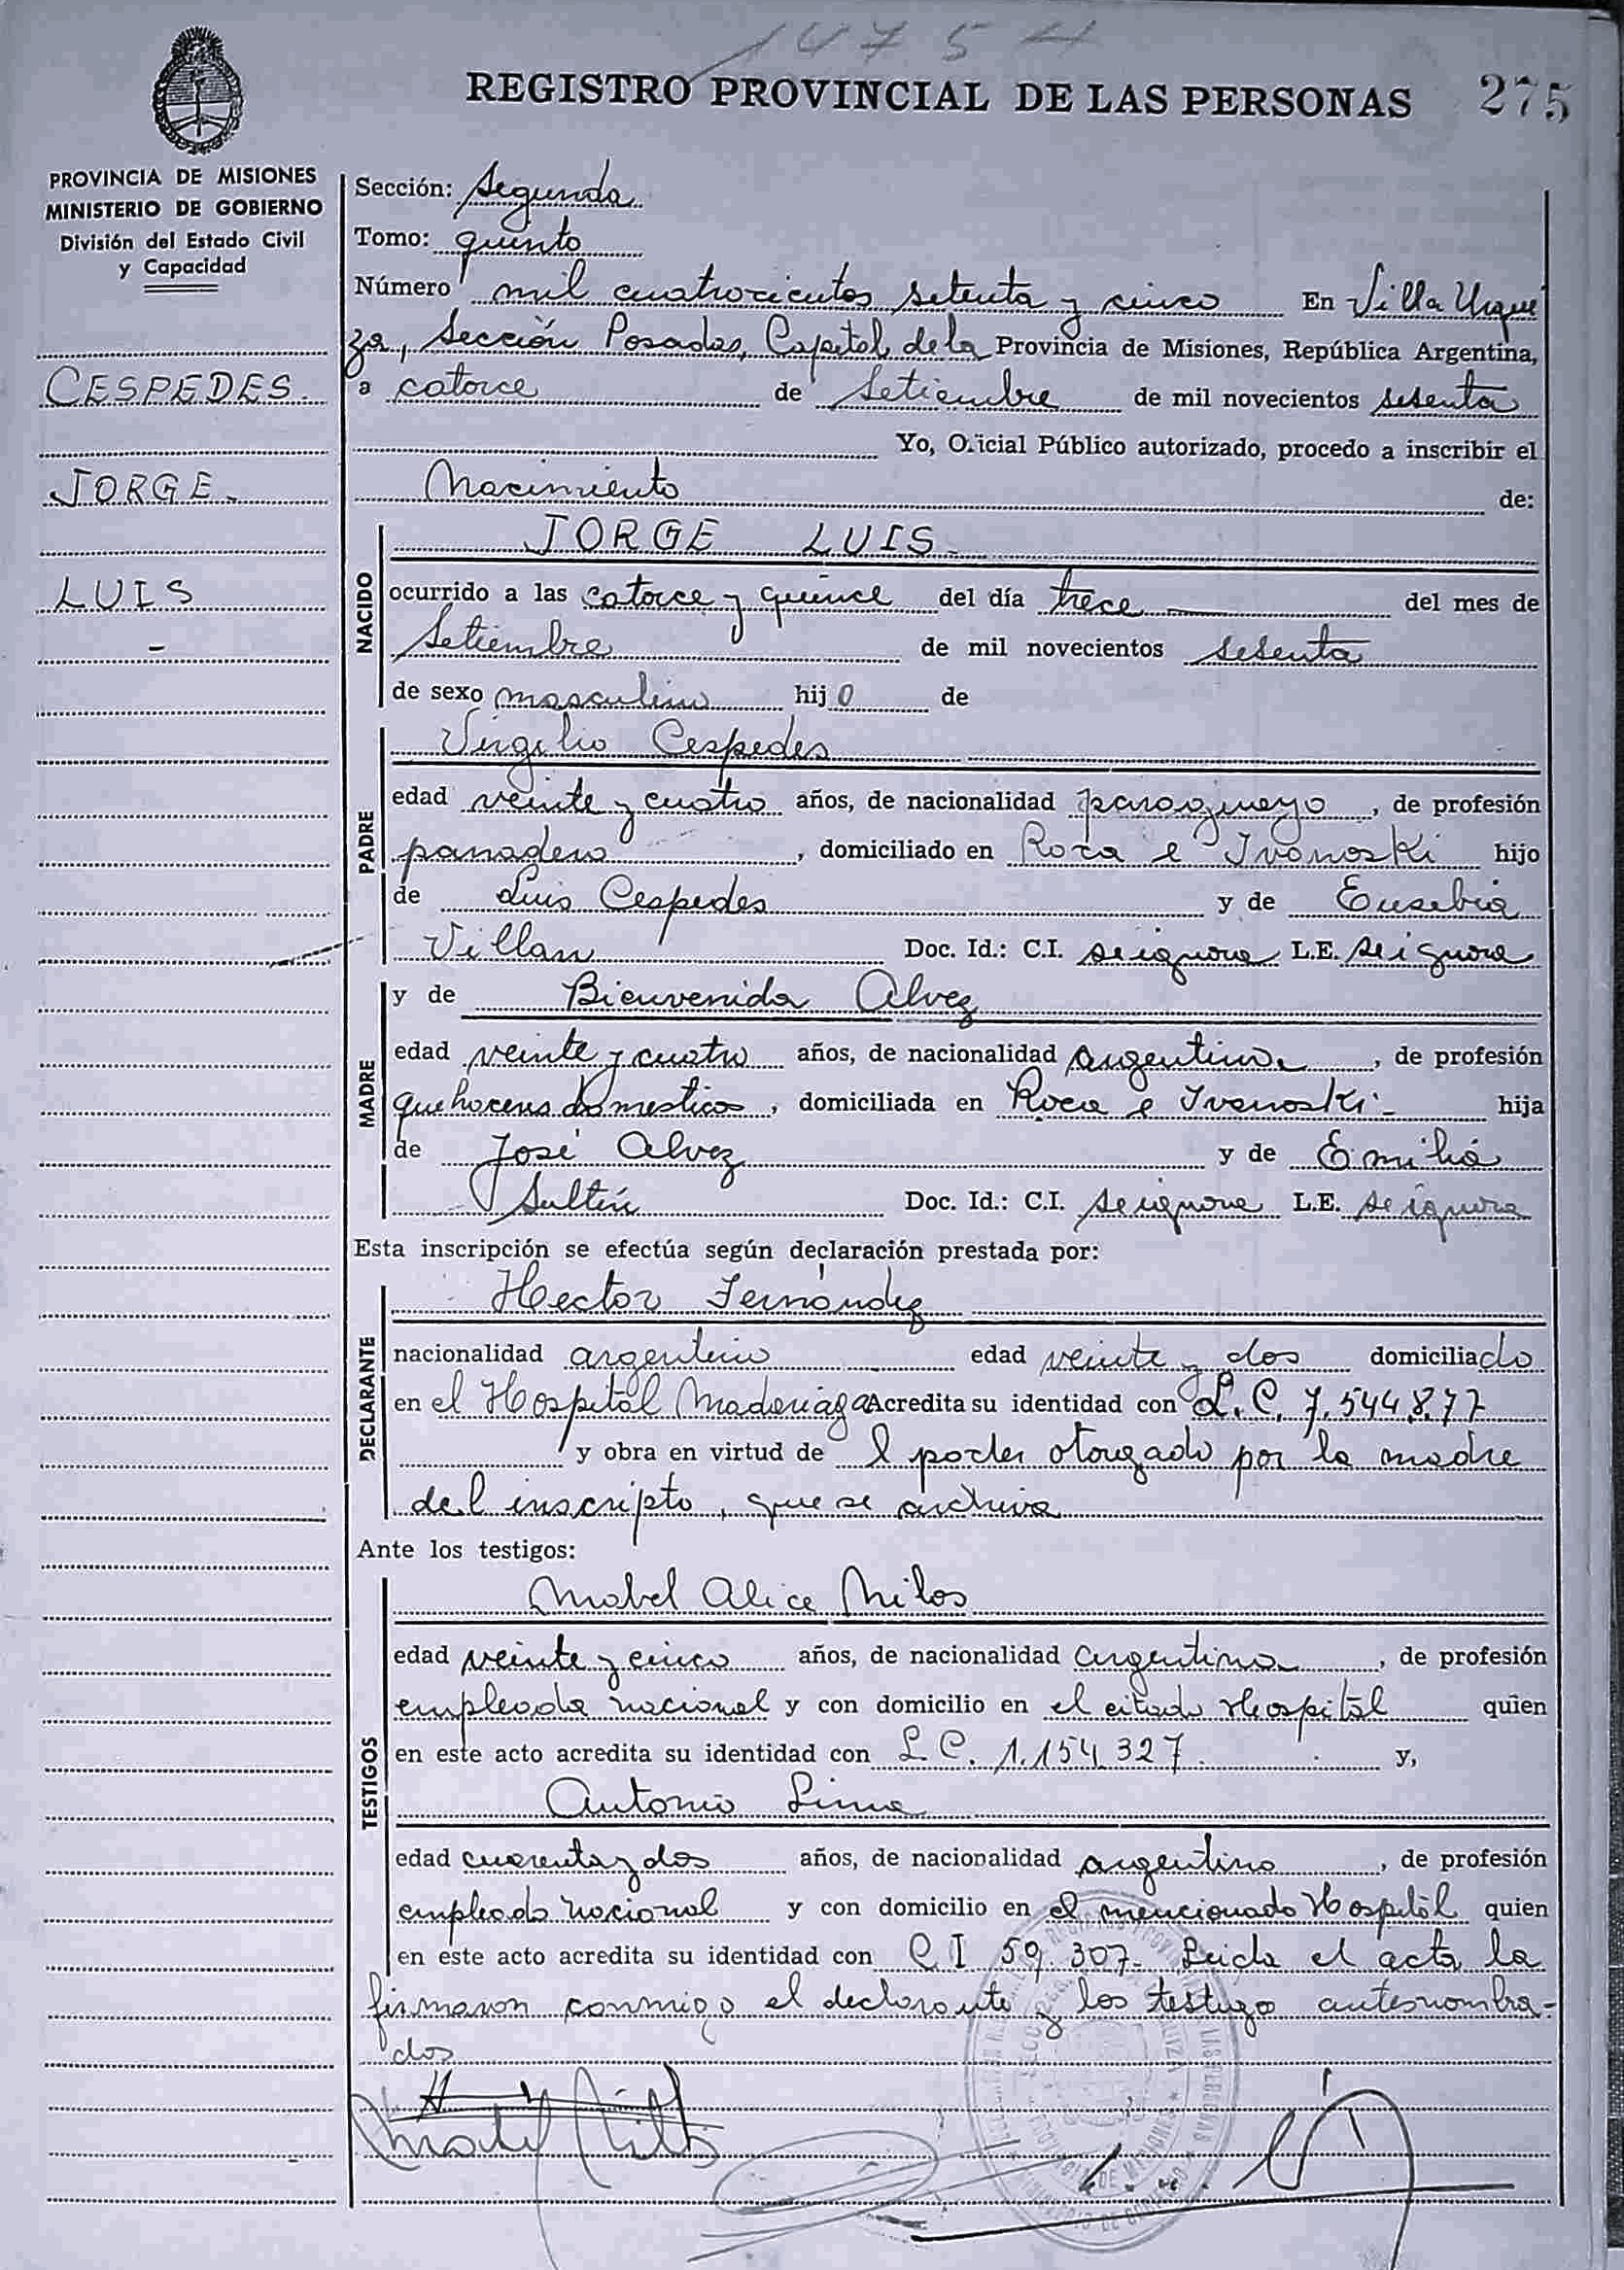 14754
REGISTRO PROVINCIAL DE LAS PERSONAS 275
PROVINCIA DE MISIONES
MINISTERIO DE GOBIERNO
División del Estado Civil
y Capacidad
CESPEDES.
JORGE.
LUIS
-
Sección: Segunda
Tomo: quinto
Número mil cuatrocientos setenta y cinco En Villa Urqui
za, Sección Posadas, Capital de la Provincia de Misiones, República Argentina,
a catorce de Setiembre de mil novecientos setenta
Yo, Oficial Público autorizado, procedo a inscribir el
Nacimiento de:
NACIDO
JORGE LUIS
ocurrido a las catorce y quince del día trece del mes de
Setiembre de mil novecientos setenta
de sexo masculino hijo de
PADRE
Virgilio Cespedes
edad veinte y cuatro años, de nacionalidad paraguayo, de profesión
panadero, domiciliado en Roca e Ivanoski hijo
de Luis Cespedes y de Eusebia
Villan Doc. Id.: C.I. se ignora L.E. se ignora
MADRE
y de Bienvenida Alvez
edad veinte y cuatro años, de nacionalidad argentina, de profesión
quehaceres domesticos, domiciliada en Roca e Ivanoski- hija
de José Alvez y de Emilia
Doc. Id.: C.I. se ignora L.E. se ignora
Esta inscripción se efectúa según declaración prestada por:
DECLARANTE
Hector Fernández
nacionalidad argentino edad veinte y dos domiciliado
en el Hospital Madariaga Acredita su identidad con L.E. 7.544.877
y obra en virtud de l poder otorgado por la madre
del inscripto, que se archiva
Ante los testigos:
TESTIGOS
Mabel Alice Milos
edad veinte y cinco años, de nacionalidad argentina, de profesión
empleada nacional y con domicilio en el citado Hospital quien
en este acto acredita su identidad con L.C. 1.154.327. y,
Antonio Lima
edad cuarenta y dos años, de nacionalidad argentino, de profesión
empleado nacional y con domicilio en el mencionado Hospital quien
en este acto acredita su identidad con C I 59.307- Leida el acta la
firmaron conmigo el declarante y los testigo antesnombra-
dos